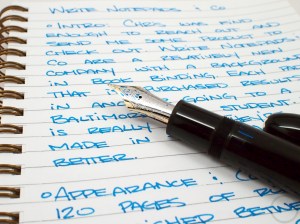 Write Notepads & Co
◦Intro: Chris was kind
enough to reach out and
send me some product to
check out. Write Notepads
Co are a relatively new
company with a background
in book binding. Each
that is going to a
in an student.
Baltimore
is really
made in
better.
◦Appearance: Co
120 pages of ru
ished be